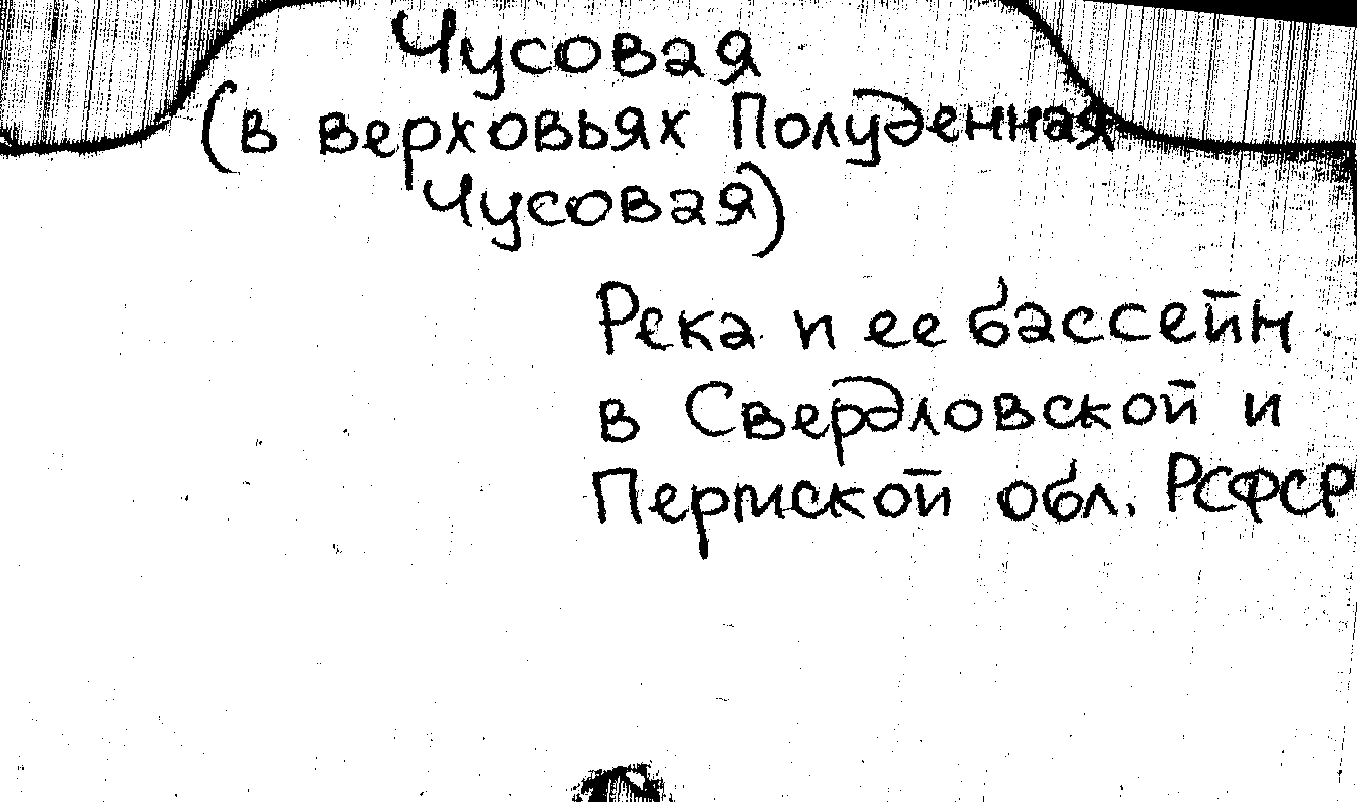 Чусовая
(в верховьях Полуденная
Чусовая)
Река и ее бассейн
в Свердловской и
Пермской обл. РСФСР